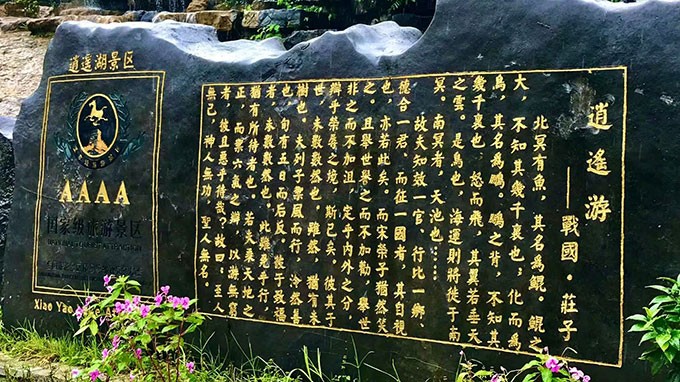 逍遙游
——戰國·莊子
北冥有魚，其名為鯤。鯤之
大，不知其幾千裏也；化而為
鳥，其名為鵬。鵬之背，不知其
幾千裏也；怒而飛，其翼若垂天
之雲。是鳥也，海運則將徙于南
冥。南冥者，天池也……
故夫知效一官、行比一鄉、
德合一君、而征一國者，其自視
也，亦若此矣。而宋榮子猶然笑
之。且舉世譽之而不加勸，舉世
非之而不加沮，定乎內外之分，
辯乎榮辱之境，斯已矣。彼其于
世，未數數然也。雖然，猶有未
樹也。夫列子禦風而行，泠然善
也，旬有五日而后反。彼于致福
者，未數數然也。此雖免乎行，
猶有所待者也。若夫乘天地之
正，而禦六氣之辯，以游無窮
者，彼且惡乎待哉？故曰：至人
無己，神人無功，聖人無名。
逍遥湖景区
AAAA
国家级旅游景区
Xiao Yao